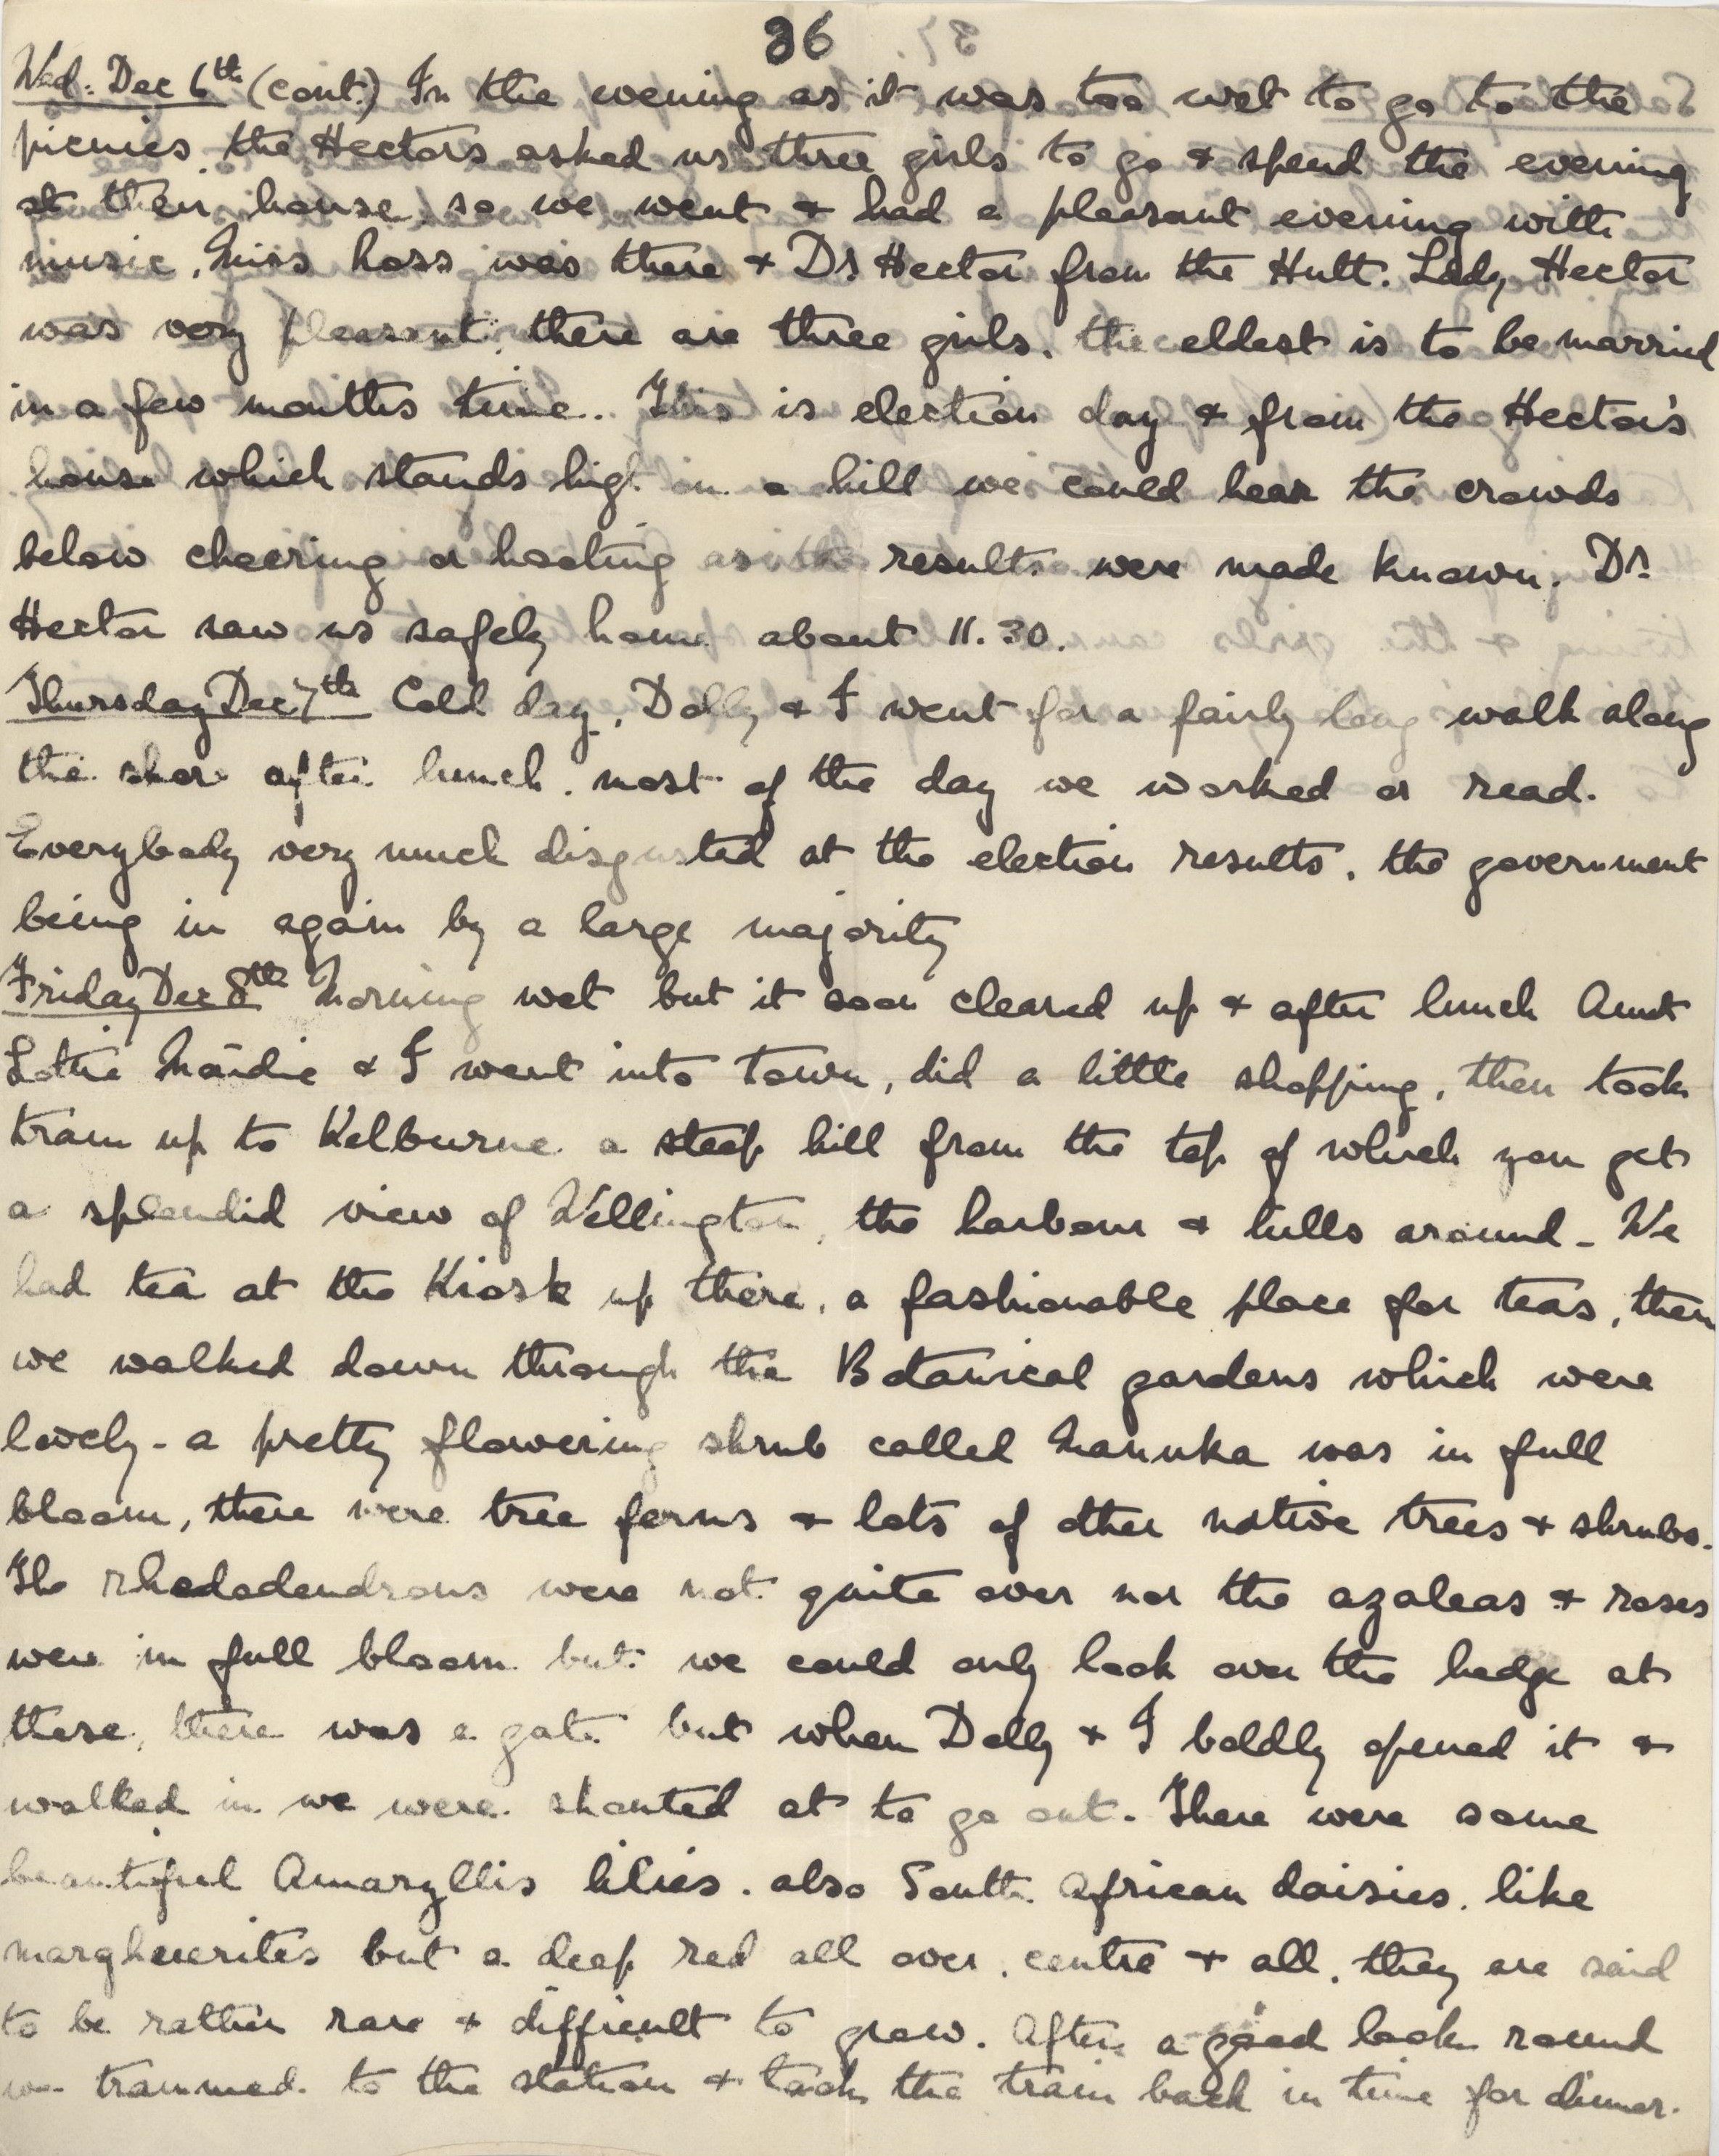 36
Wed: Dec 6th (cont.) In the evening as it was too wet to go to the
picnics, the Hectors asked us three girls to go & spend the evening
at their house, so we went & had a pleasant evening with
music. Miss Ross was there & Dr Hector from the Hutt. Lady Hector
was very pleasant, there are three girls, the eldest is to be married
in a few months time. This is election day & from the Hector's
house which stands high on a hill we could hear the crowds
below cheering or hooting as the results were made known. Dr
Hector saw us safely home about 11.30.
Thursday Dec 7th Cold day, Dolly & I went for a fairly long walk along
the shore after lunch, most of the day we worked or read.
Everybody very much disgusted at the election results, the government
being in again by a large majority
Friday Dec 8th Morning wet but it soon cleared up & after lunch Aunt
Lottie Mardie & I went into town, did a little shopping, then took
tram up to Kelburne a steep hill from the top of which you get
a splendid view of Wellington, the harbour & hills around - We
had tea at the Kiosk up there, a fashionable place for teas, then
we walked down through the Botanical gardens which were
lovely - a pretty flowering shrub called Manuka was in full
bloom, there were tree ferns & lots of other native trees & shrubs.
The rhododendrons were not quite over nor the azaleas & roses
were in full bloom but we could only look over the hedge at
these, there was a gate but when Dolly & I boldly opened it &
walked in we were shouted at to go out. There were some
beautiful Amaryllis lilies, also South African daisies, like
marghuerites but a deep red all over, centre & all, they are said
to be rather rare & difficult to grow. After a good look round
we trammed to the station & took the train back in time for dinner.